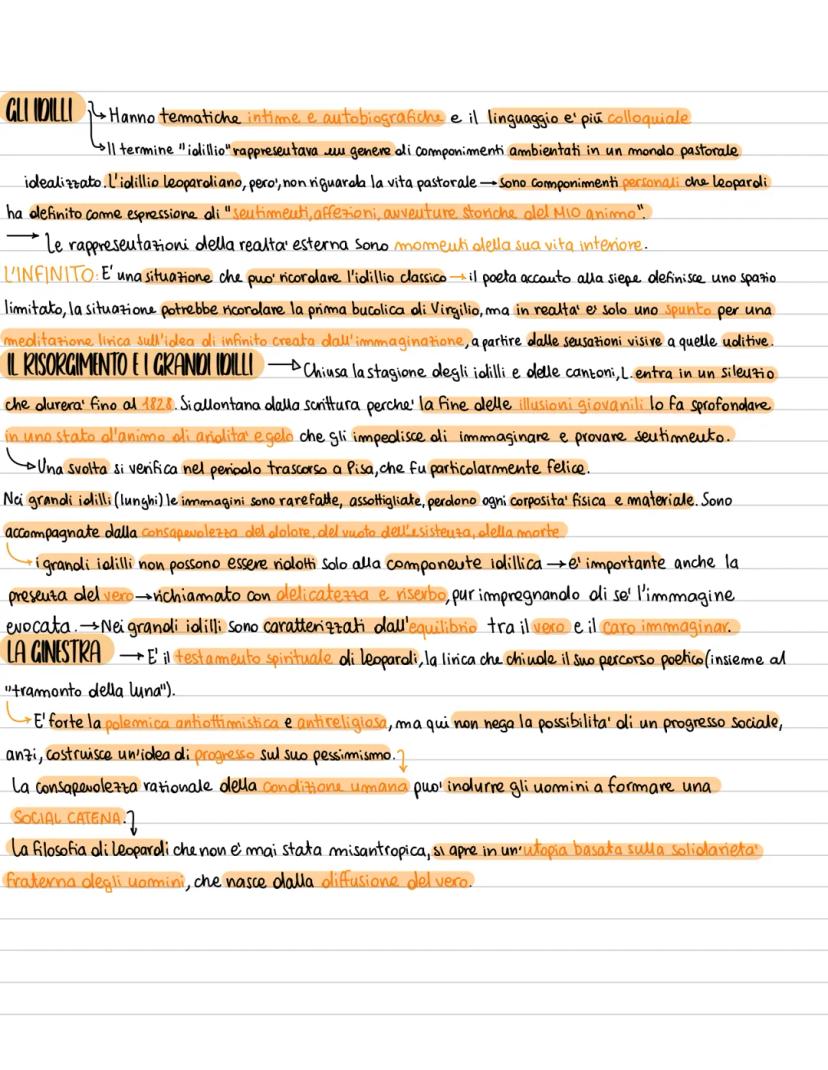 GLI IDILLI → Hanno tematiche intime e autobiografiche e il linguaggio e' più colloquiale
→ Il termine "idillio" rappresentava un genere di componimenti ambientati in un mondo pastorale
idealizzato. L'idillio leopardiano, pero', non riguarda la vita pastorale → sono componimenti personali che leopardi
ha definito come espressione di "sentimenti, affezioni, avventure storiche del MIO animo".
→ Le rappresentazioni della realta' esterna sono momenti della sua vita interiore.
L'INFINITO: E' una situazione che puo' ricordare l'idillio classico → il poeta accanto alla siepe definisce uno spazio
limitato, la situazione potrebbe ricordare la prima bucolica di Virgilio, ma in realta' e' solo uno spunto per una
meditazione lirica sull'idea di infinito creata dall'immaginazione, a partire dalle sensazioni visive a quelle uditive.
IL RISORGIMENTO E I GRANDI IDILLI → Chiusa la stagione degli idilli e delle canzoni, L. entra in un silenzio
che durera' fino al 1828. Si allontana dalla scrittura perche' la fine delle illusioni giovanili lo fa sprofondare
in uno stato d'animo di aridita' e gelo che gli impedisce di immaginare e provare sentimento.
→ Una svolta si verifica nel periodo trascorso a Pisa, che fu particolarmente felice.
Nei grandi idilli (lunghi) le immagini sono rarefatte, assottigliate, perdono ogni corposita' fisica e materiale. Sono
accompagnate dalla consapevolezza del dolore, del vuoto dell'esistenza, della morte
→ i grandi idilli non possono essere ridotti solo alla componente idillica → e' importante anche la
presenza del vero → richiamato con delicatezza e riserbo, pur impregnando di se' l'immagine
evocata. → Nei grandi idilli sono caratterizzati dall'equilibrio tra il vero e il caro immaginar.
LA GINESTRA → E' il testamento spirituale di Leopardi, la lirica che chiude il suo percorso poetico (insieme al
"tramonto della luna").
→ E' forte la polemica antiottimistica e antireligiosa, ma qui non nega la possibilita' di un progresso sociale,
anzi, costruisce un'idea di progresso sul suo pessimismo.
La consapevolezza razionale della condizione umana puo' indurre gli uomini a formare una
SOCIAL CATENA.
La filosofia di Leopardi che non e' mai stata misantropica, si apre in un'utopia basata sulla solidarieta'
fraterna degli uomini, che nasce dalla diffusione del vero.